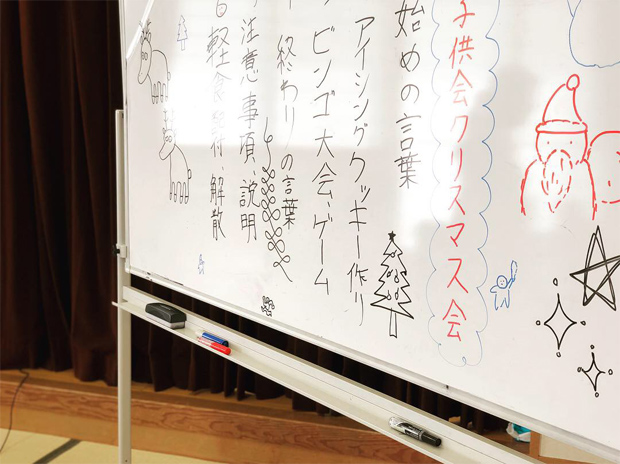 子供会クリスマス会
始めの言葉
アイシングクッキー作り
ビンゴ大会、ゲーム
終わりの言葉
注意事項、説明
軽食 、解散